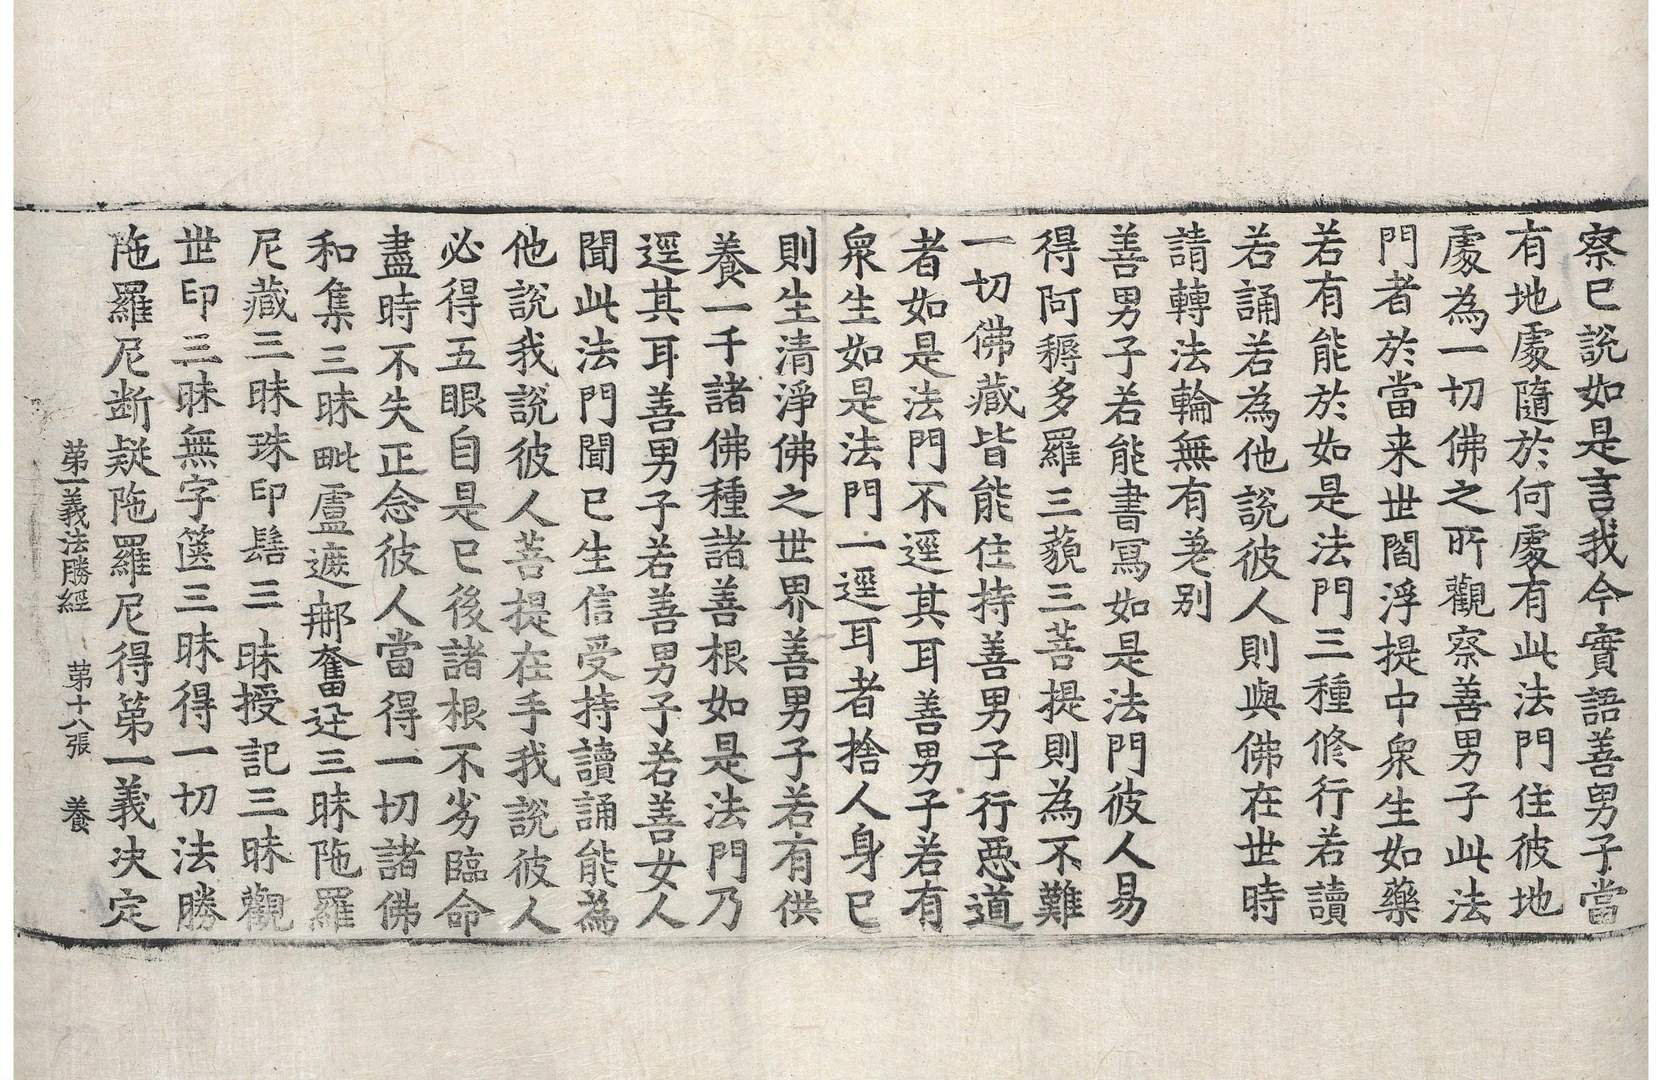 察已說如是言我今實語善男子當
有地處隨於何處有此法門住彼地
處為一切佛之所觀察善男子此法
門者於當来世閻浮提中衆生如藥
若有能於如是法門三種修行若讀
若誦若為他說彼人則與佛在世時
請轉法輪無有差别
善男子若能書寫如是法門彼人易
得阿耨多羅三藐三菩提則為不難
一切佛藏皆能住持善男子行惡道
者如是法門不逕其耳善男子若有
衆生如是法門一逕耳者捨人身已
則生清淨佛之世界善男子若有供
養一千諸佛種諸善根如是法門乃
逕其耳善男子若善男子若善女人
聞此法門聞已生信受持讀誦能為
他說我說彼人菩提在手我說彼人
必得五眼自是已後諸根不劣臨命
盡時不失正念彼人當得一切諸佛
和集三昧毗盧遮那奮迅三昧陁羅
尼藏三昧珠印髻三昧授記三昧觀
世印三昧無字篋三昧得一切法勝
陁羅尼断疑陁羅尼得第一義决定
第一義法勝經 第十八張 養